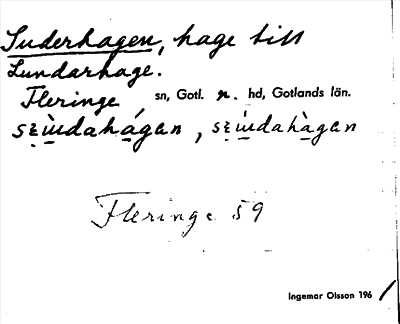 Suderhagen, hage till
Lundarhage.
Fleringe, sn, Gotl. n. hd, Gotlands län.
Fleringe 59
Ingemar Olsson 1961